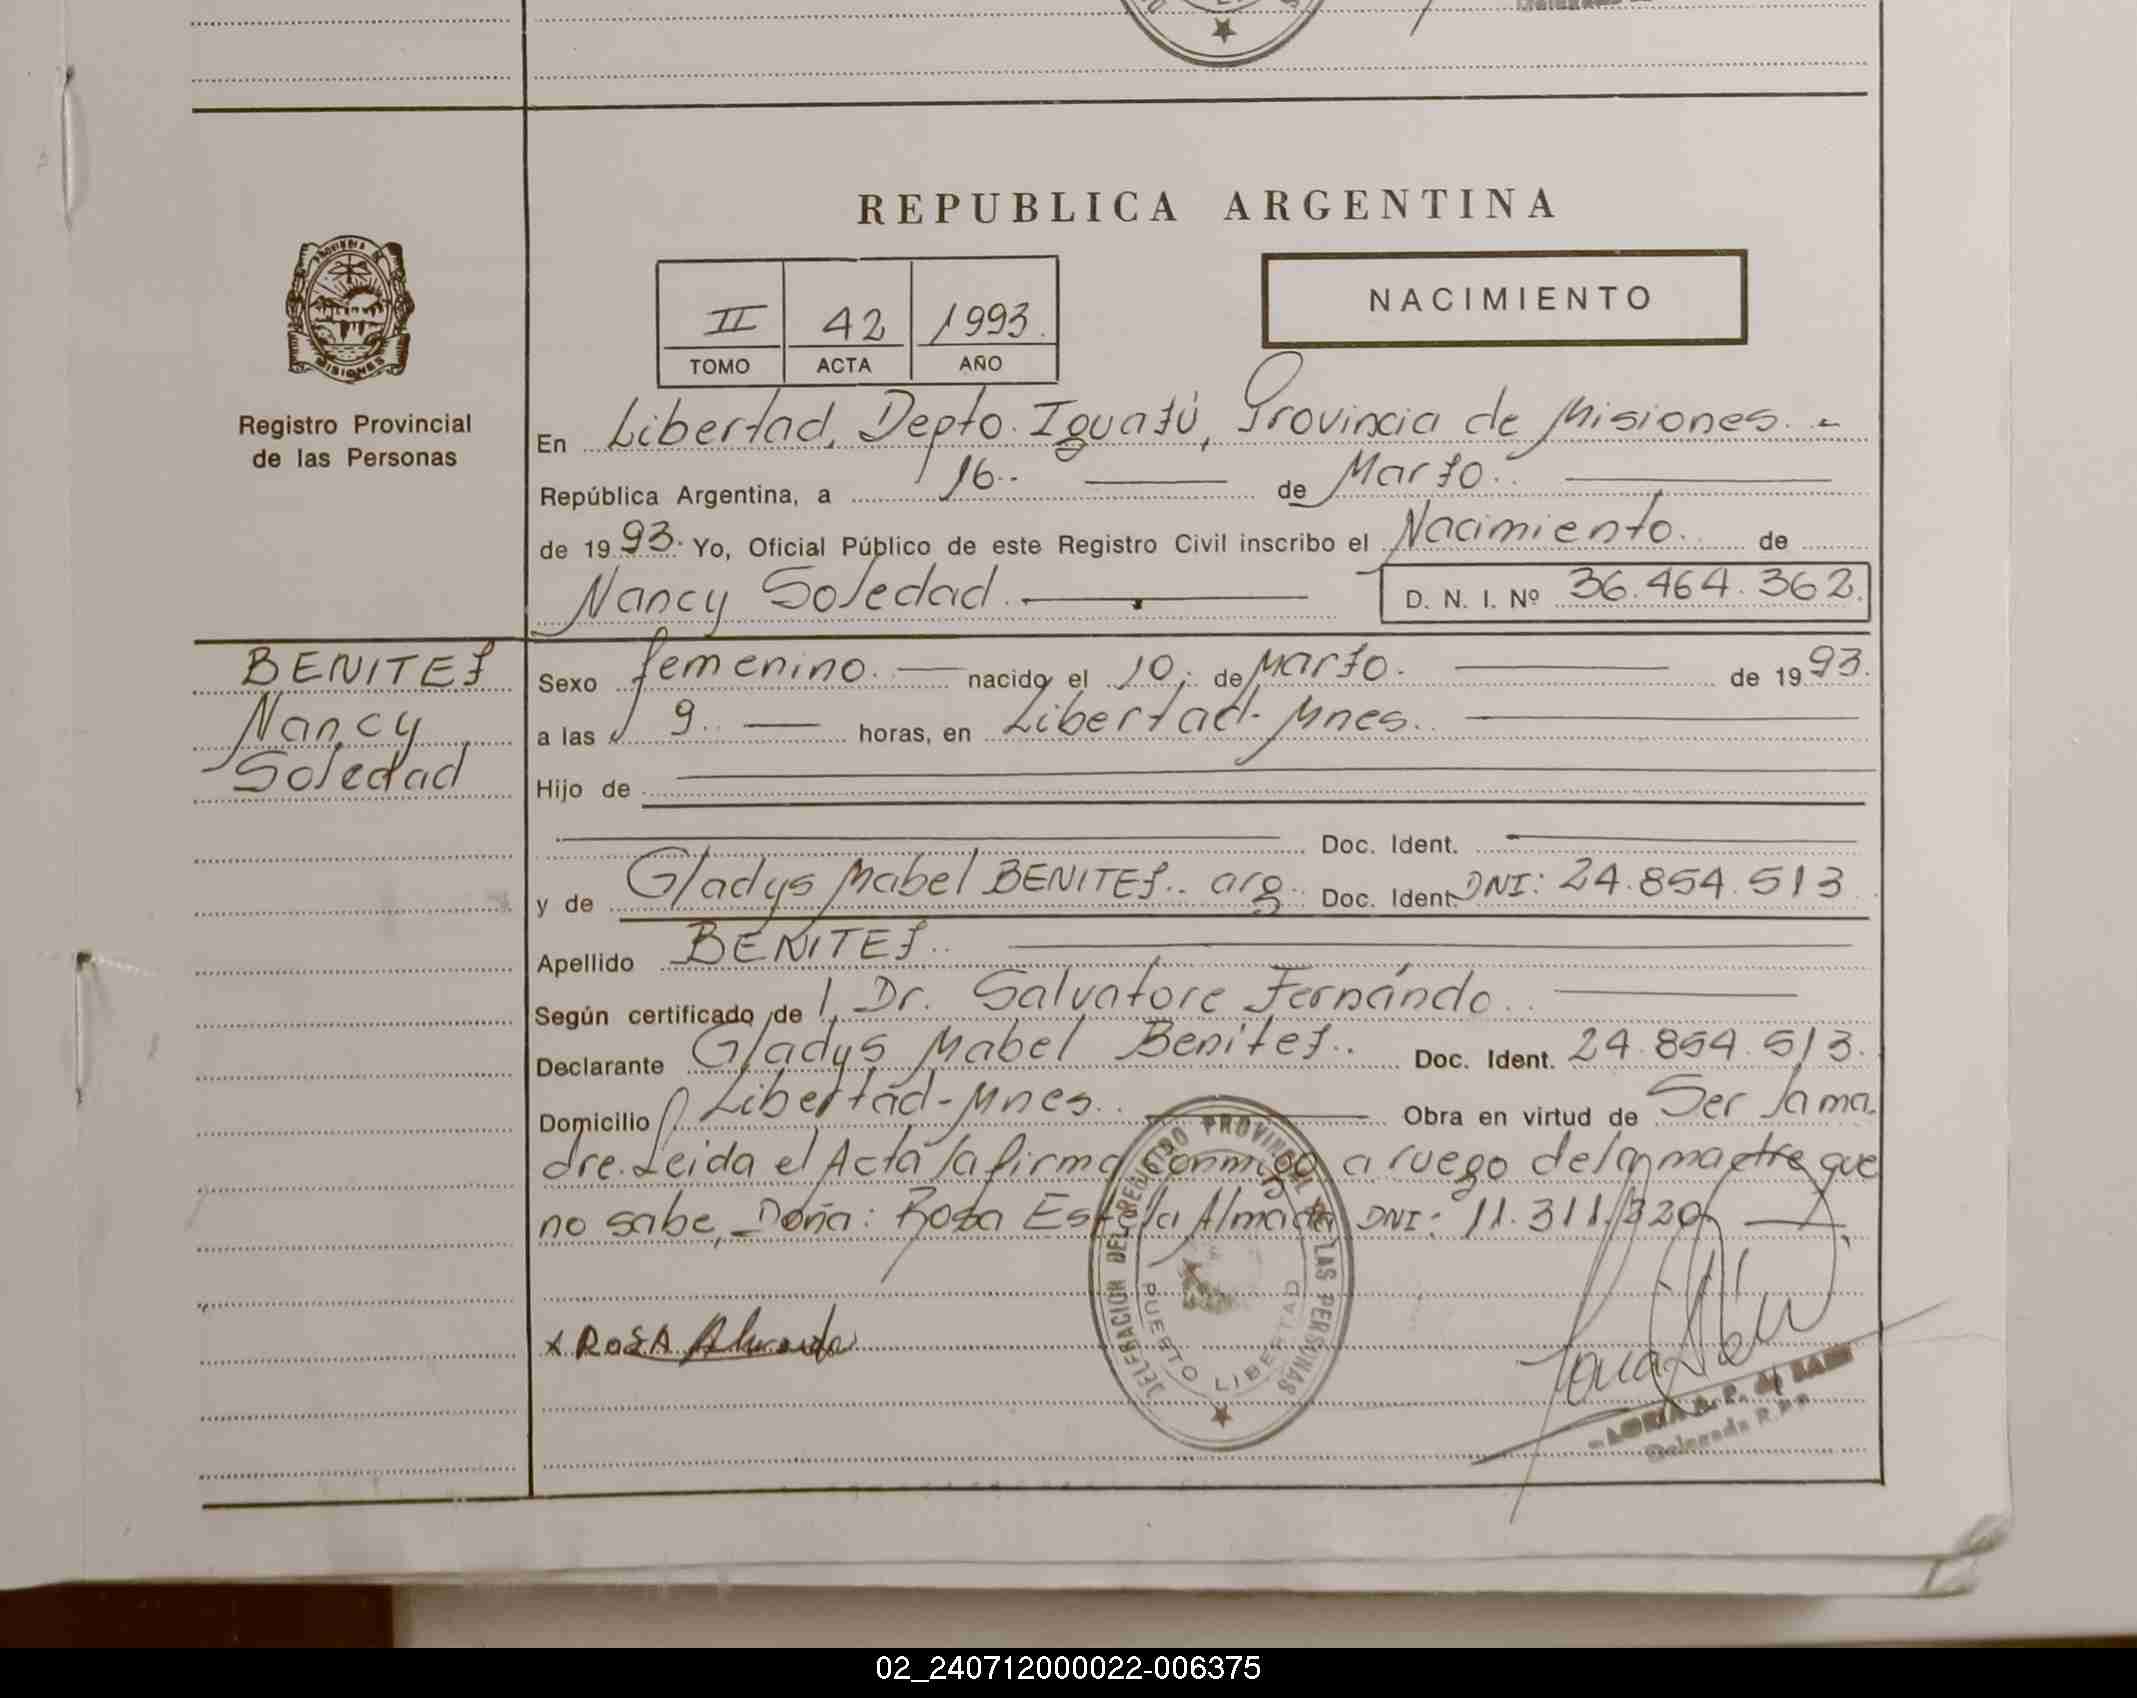 REPUBLICA ARGENTINA
II 42 1993.
TOMO ACTA AÑO
NACIMIENTO
PROVINCIA
MISIONES
Registro Provincial
de las Personas
En Libertad, Depto. Iguazú, Provincia de Misiones. -
República Argentina, a 16.- de Marzo.
de 1993. Yo, Oficial Público de este Registro Civil inscribo el Nacimiento. de
Nancy Soledad. D. N. I. Nº 36.464.362.
BENITEZ
Nancy
Soledad
Sexo femenino. nacido el 10. de Marzo. de 1993.
a las 9. horas, en Libertad-Mnes.
Hijo de
Doc. Ident.
y de Gladys Mabel BENITEZ.. arg. Doc. Ident. DNI: 24.854.513
Apellido BENITEZ..
Según certificado de Dr. Salvatore Fernándo.
Declarante Gladys Mabel Benitez.. Doc. Ident. 24.854.513.
Domicilio Libertad-Mnes.. Obra en virtud de Ser la ma.
dre. Leida el Acta la firma conmigo a ruego de la madre que
no sabe, Doña: Rosa Estela Almada DNI: 11.311.320
x ROSA Almada
DELEGACION DEL REGISTRO PROVINCIAL DE LAS PERSONAS
PUERTO LIBERTAD
Delegada R.P.P.
02_240712000022-006375